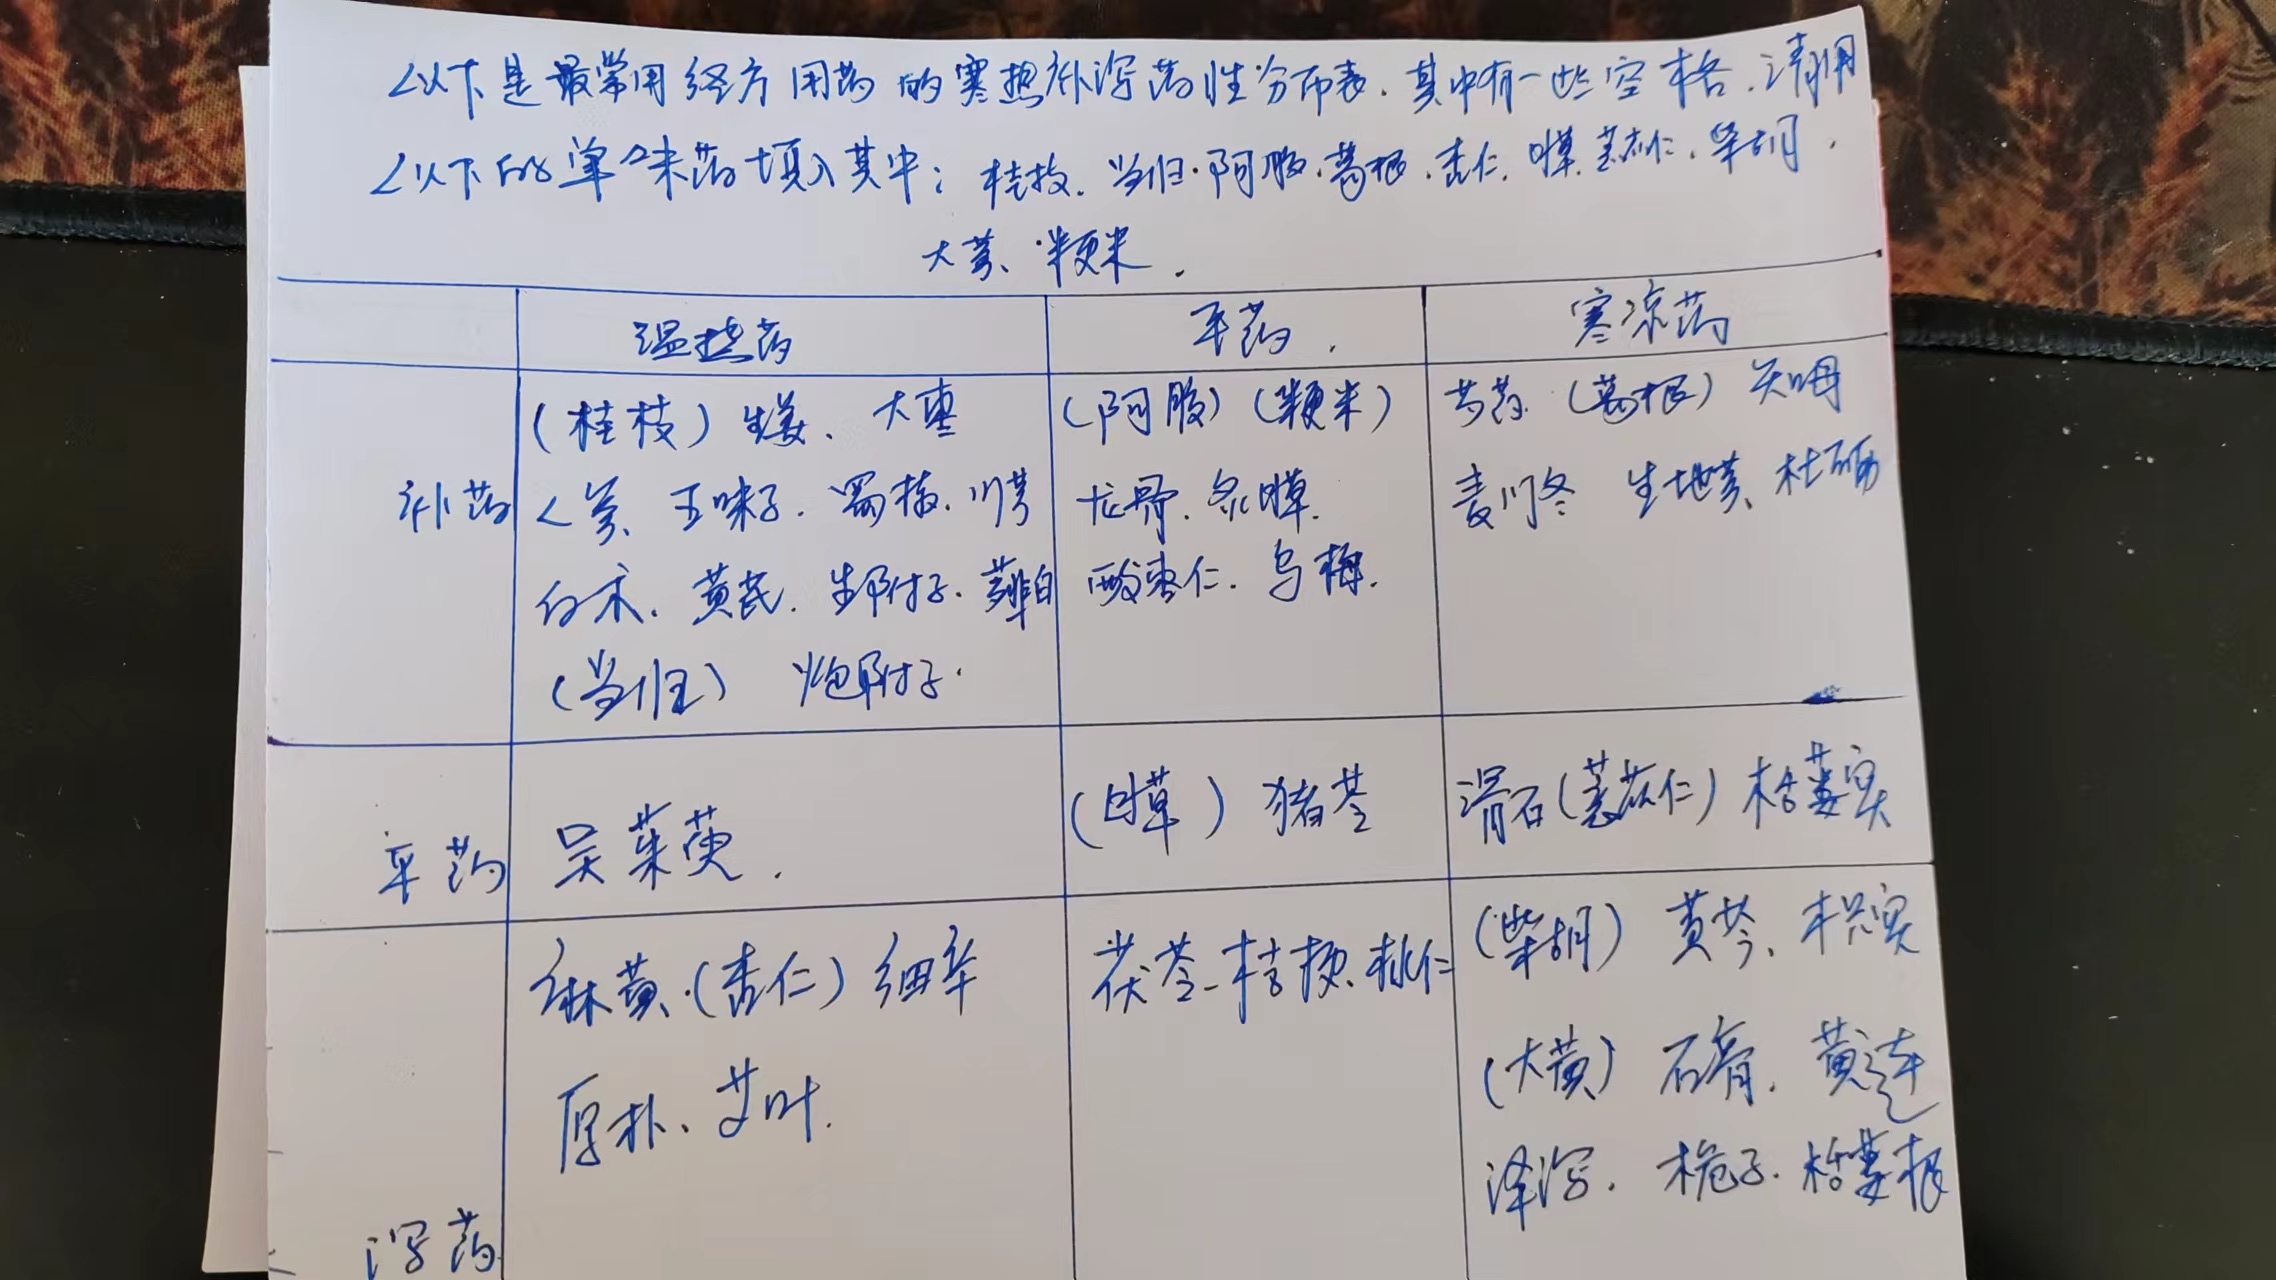 以下是最常用经方用药的寒热补泻药性分布表.其中有一些空格.请用
以下的单味药填入其中:桂枝.当归.阿胶.葛根.杏仁.甘草.薏苡仁.柴胡.
大黄、粳米.
温热药 平药. 寒凉药
补药
(桂枝)生姜、大枣
人参、五味子.蜀椒.川芎
白术.黄芪.生附子.薤白
(当归) 炮附子.
(阿胶)(粳米)
龙骨.炙甘草.
酸枣仁.乌梅.
芍药.(葛根)知母
麦门冬 生地黄、牡蛎
平药 吴茱萸. (甘草)猪苓 滑石(薏苡仁)栝蒌实
泻药
麻黄.(杏仁)细辛
厚朴、艾叶.
茯苓-桔梗.桃仁
(柴胡)黄芩、枳实
(大黄)石膏.黄连
泽泻.栀子.栝蒌根